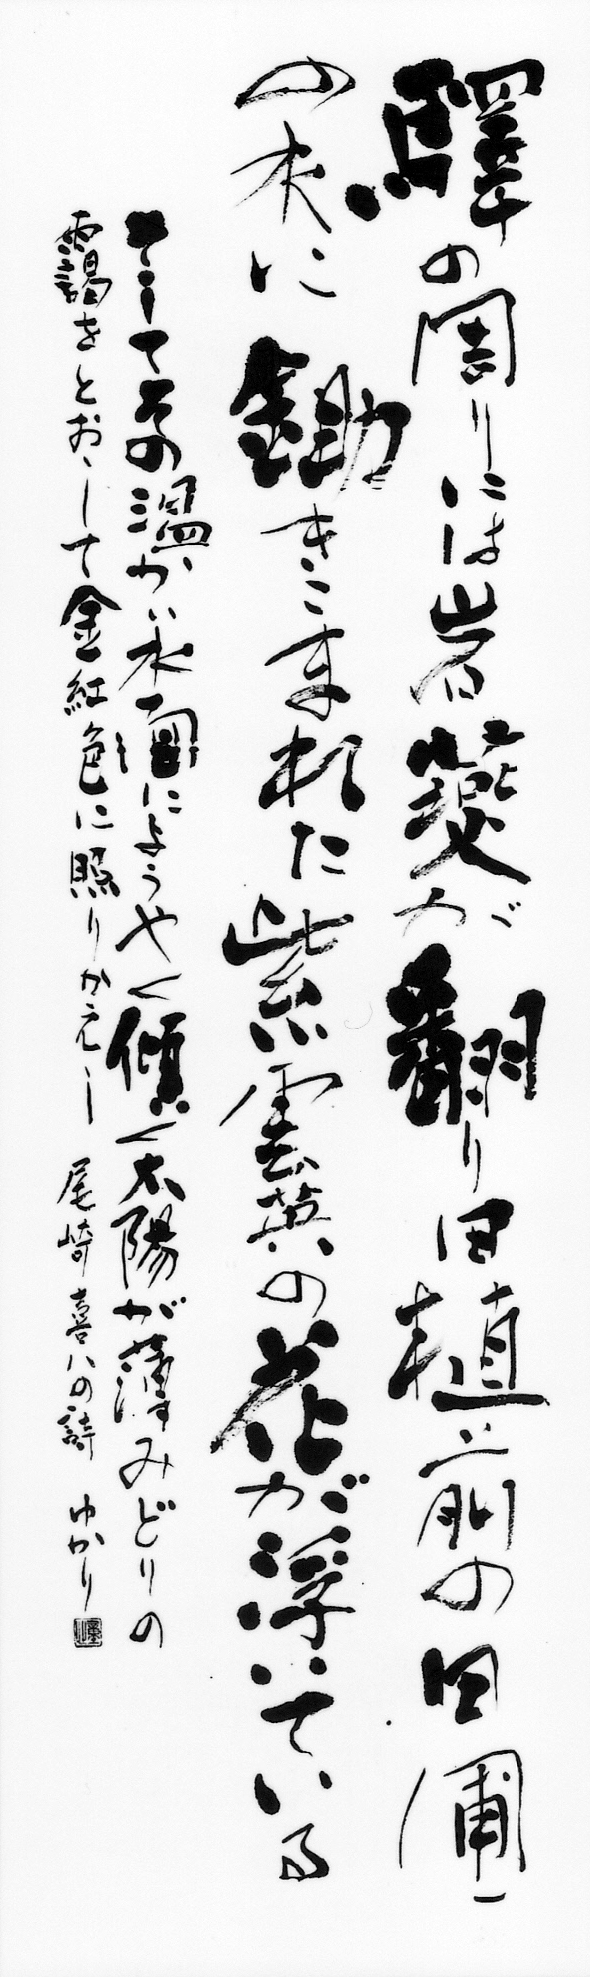 驛の周りには岩燕が翻り田植え前の田圃
の水に鋤きこまれた紫雲英の花が浮いている
そしてその温かい水面にようやく傾く太陽が薄みどりの
靄をとおして金紅色に照りかえし 尾崎喜八の詩 ゆかり